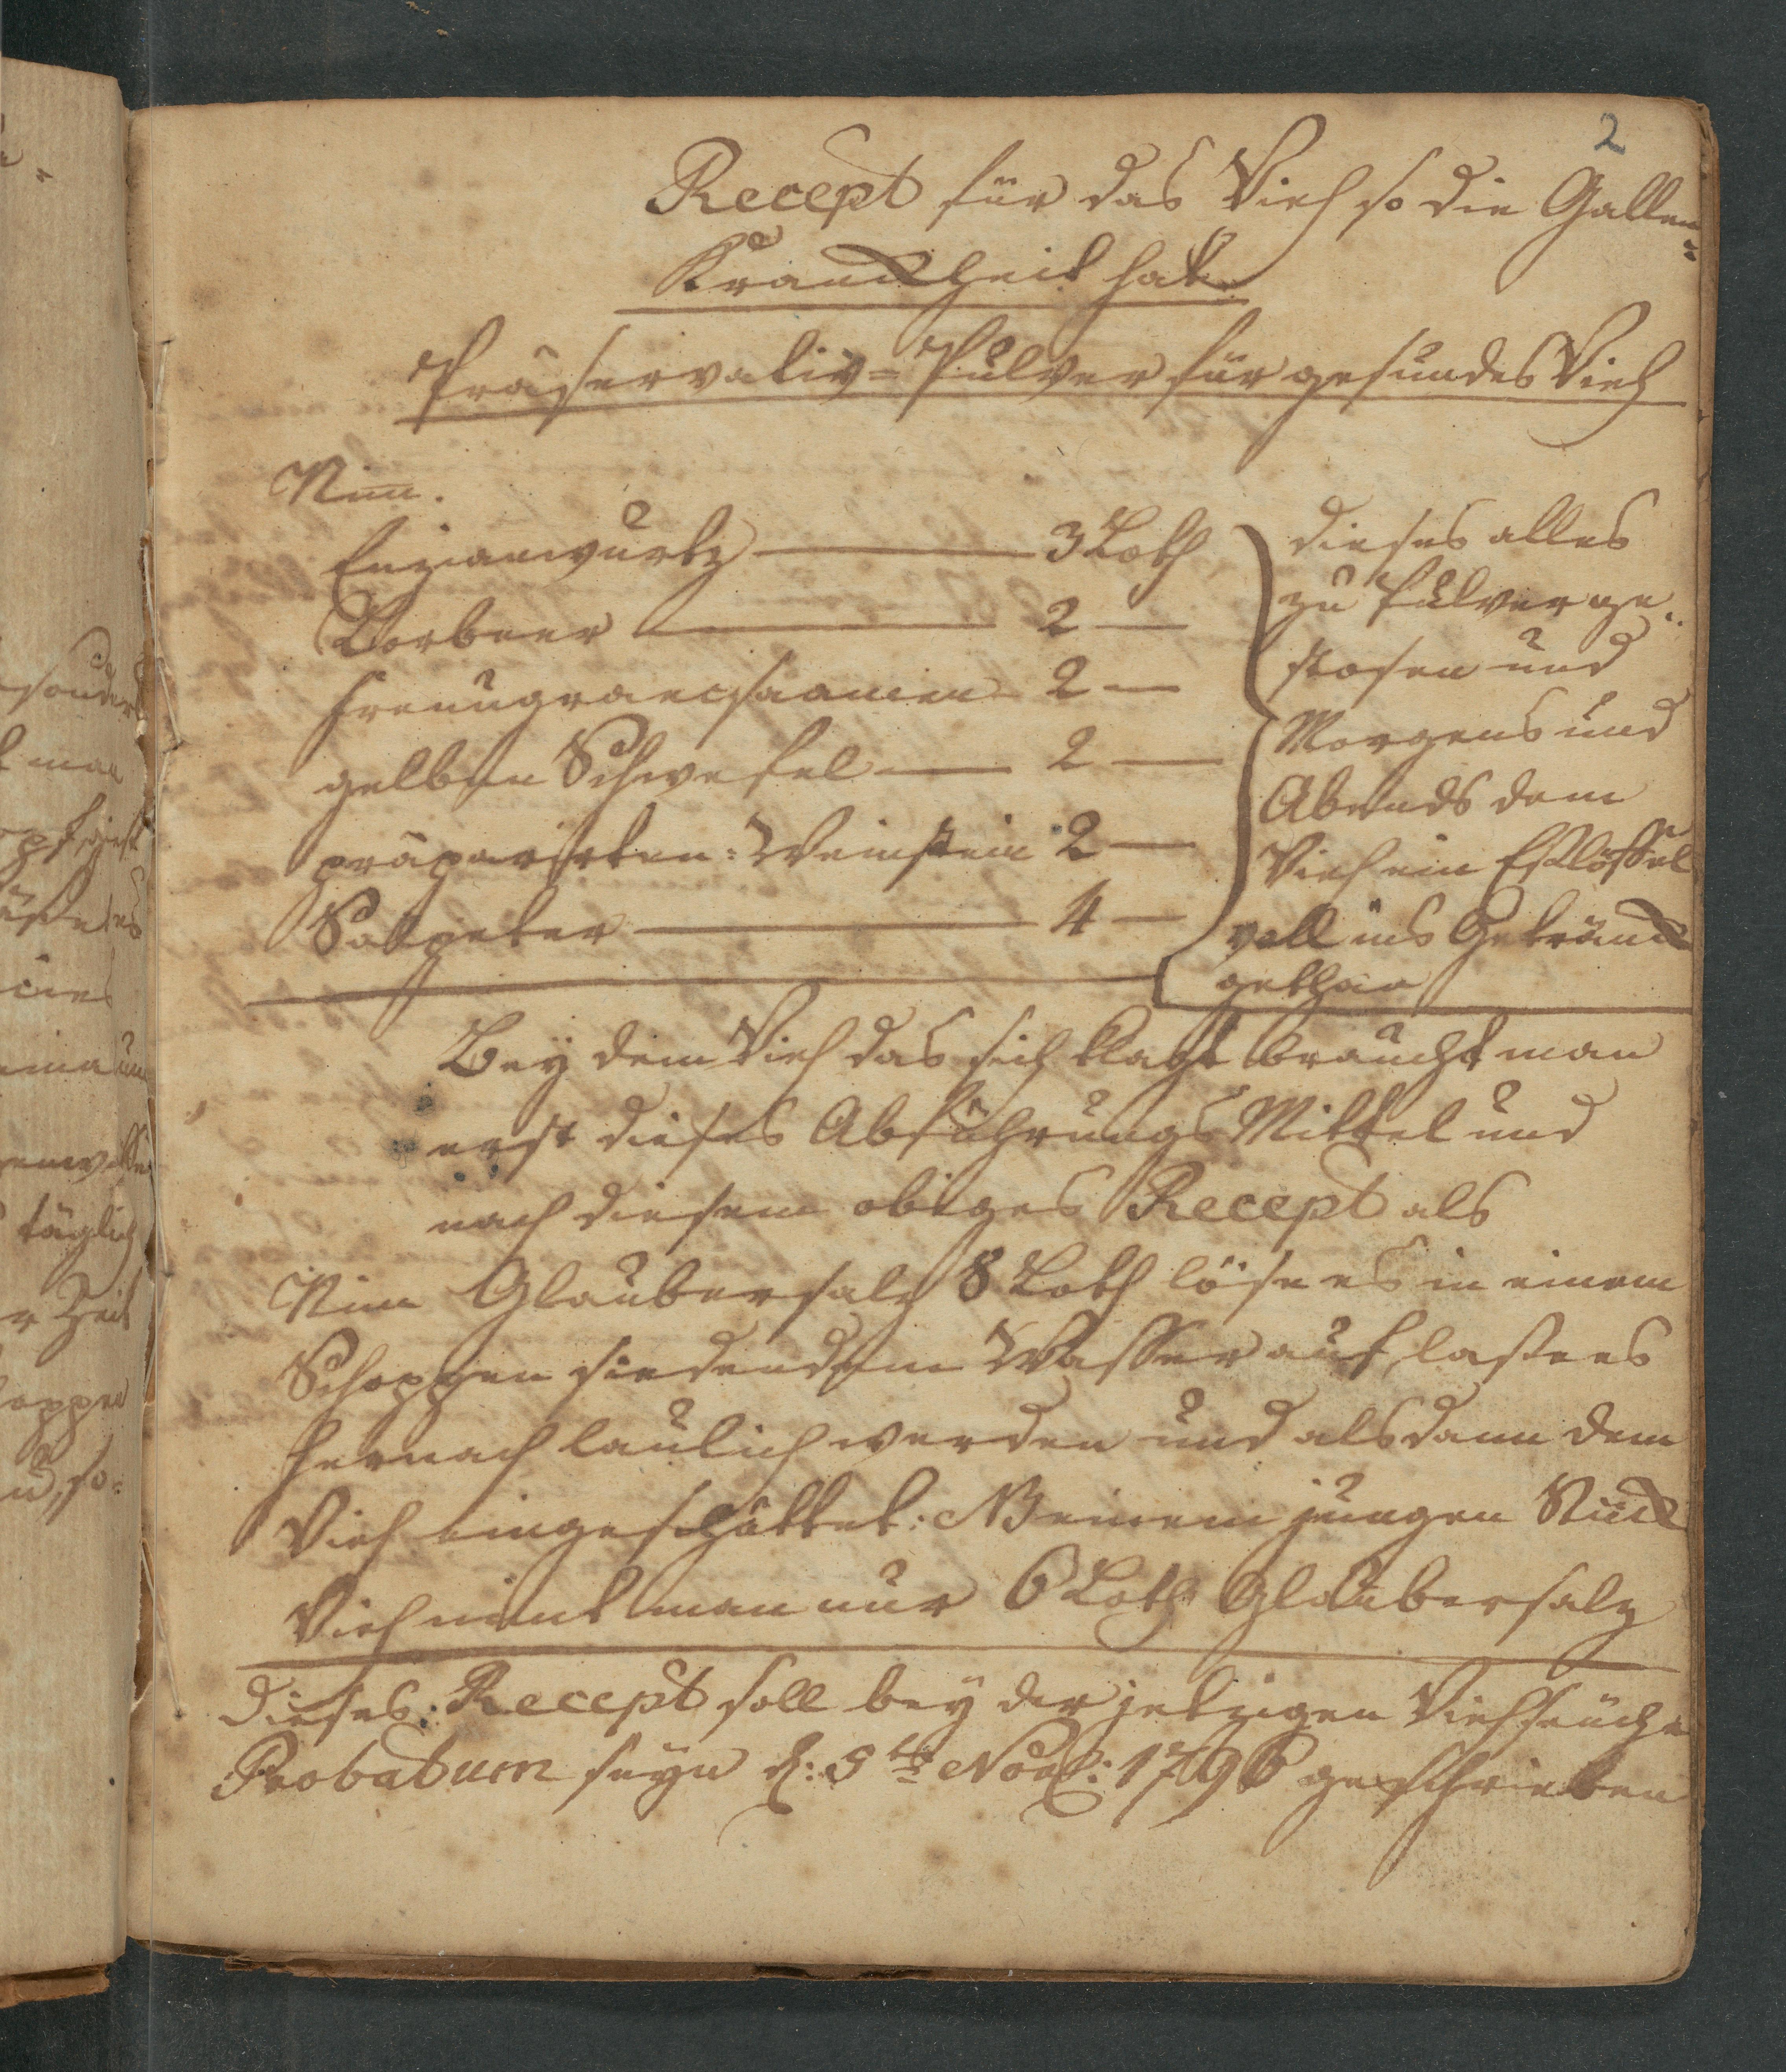 2
Recept für das Vieh so die Gallen=
Kranckheit hat
Präservativ=Pulver für gesundes Vieh
Nim̄.
Enzianwurtz — 3 Loth
Lorbeer — 2 —
Frenugraecsaamen — 2 —
gelben Schwefel — 2 —
präparirten: Weinstein 2 —
Salpeter — 4 —
dieses alles
zu Pulver ge=
stosen und
Morgens und
Abends dem
Vieh ein Eßlöffel
voll ins Getränck
gethan
Bey dem Vieh das sich klagt braucht man
erst dieses Abführungs Mittel und
nach diesem obiges Recept als
Nim Glaubersalz 8 Loth löse es in einem
Schoppen siedendem Wasser auf, lasse es
hernach laulich werden und alsdann dem
Vieh eingeschüttet: NB einem jungen Stück
Vieh nimt man nur 6 Loth Glaubersalz
dieses: Recept soll bey der jetzigen Viehseuche
Probatum seyn d: 5ten Novb: 1796 geschrieben
sonder
man
täglich
r Zeit
oppen
so=